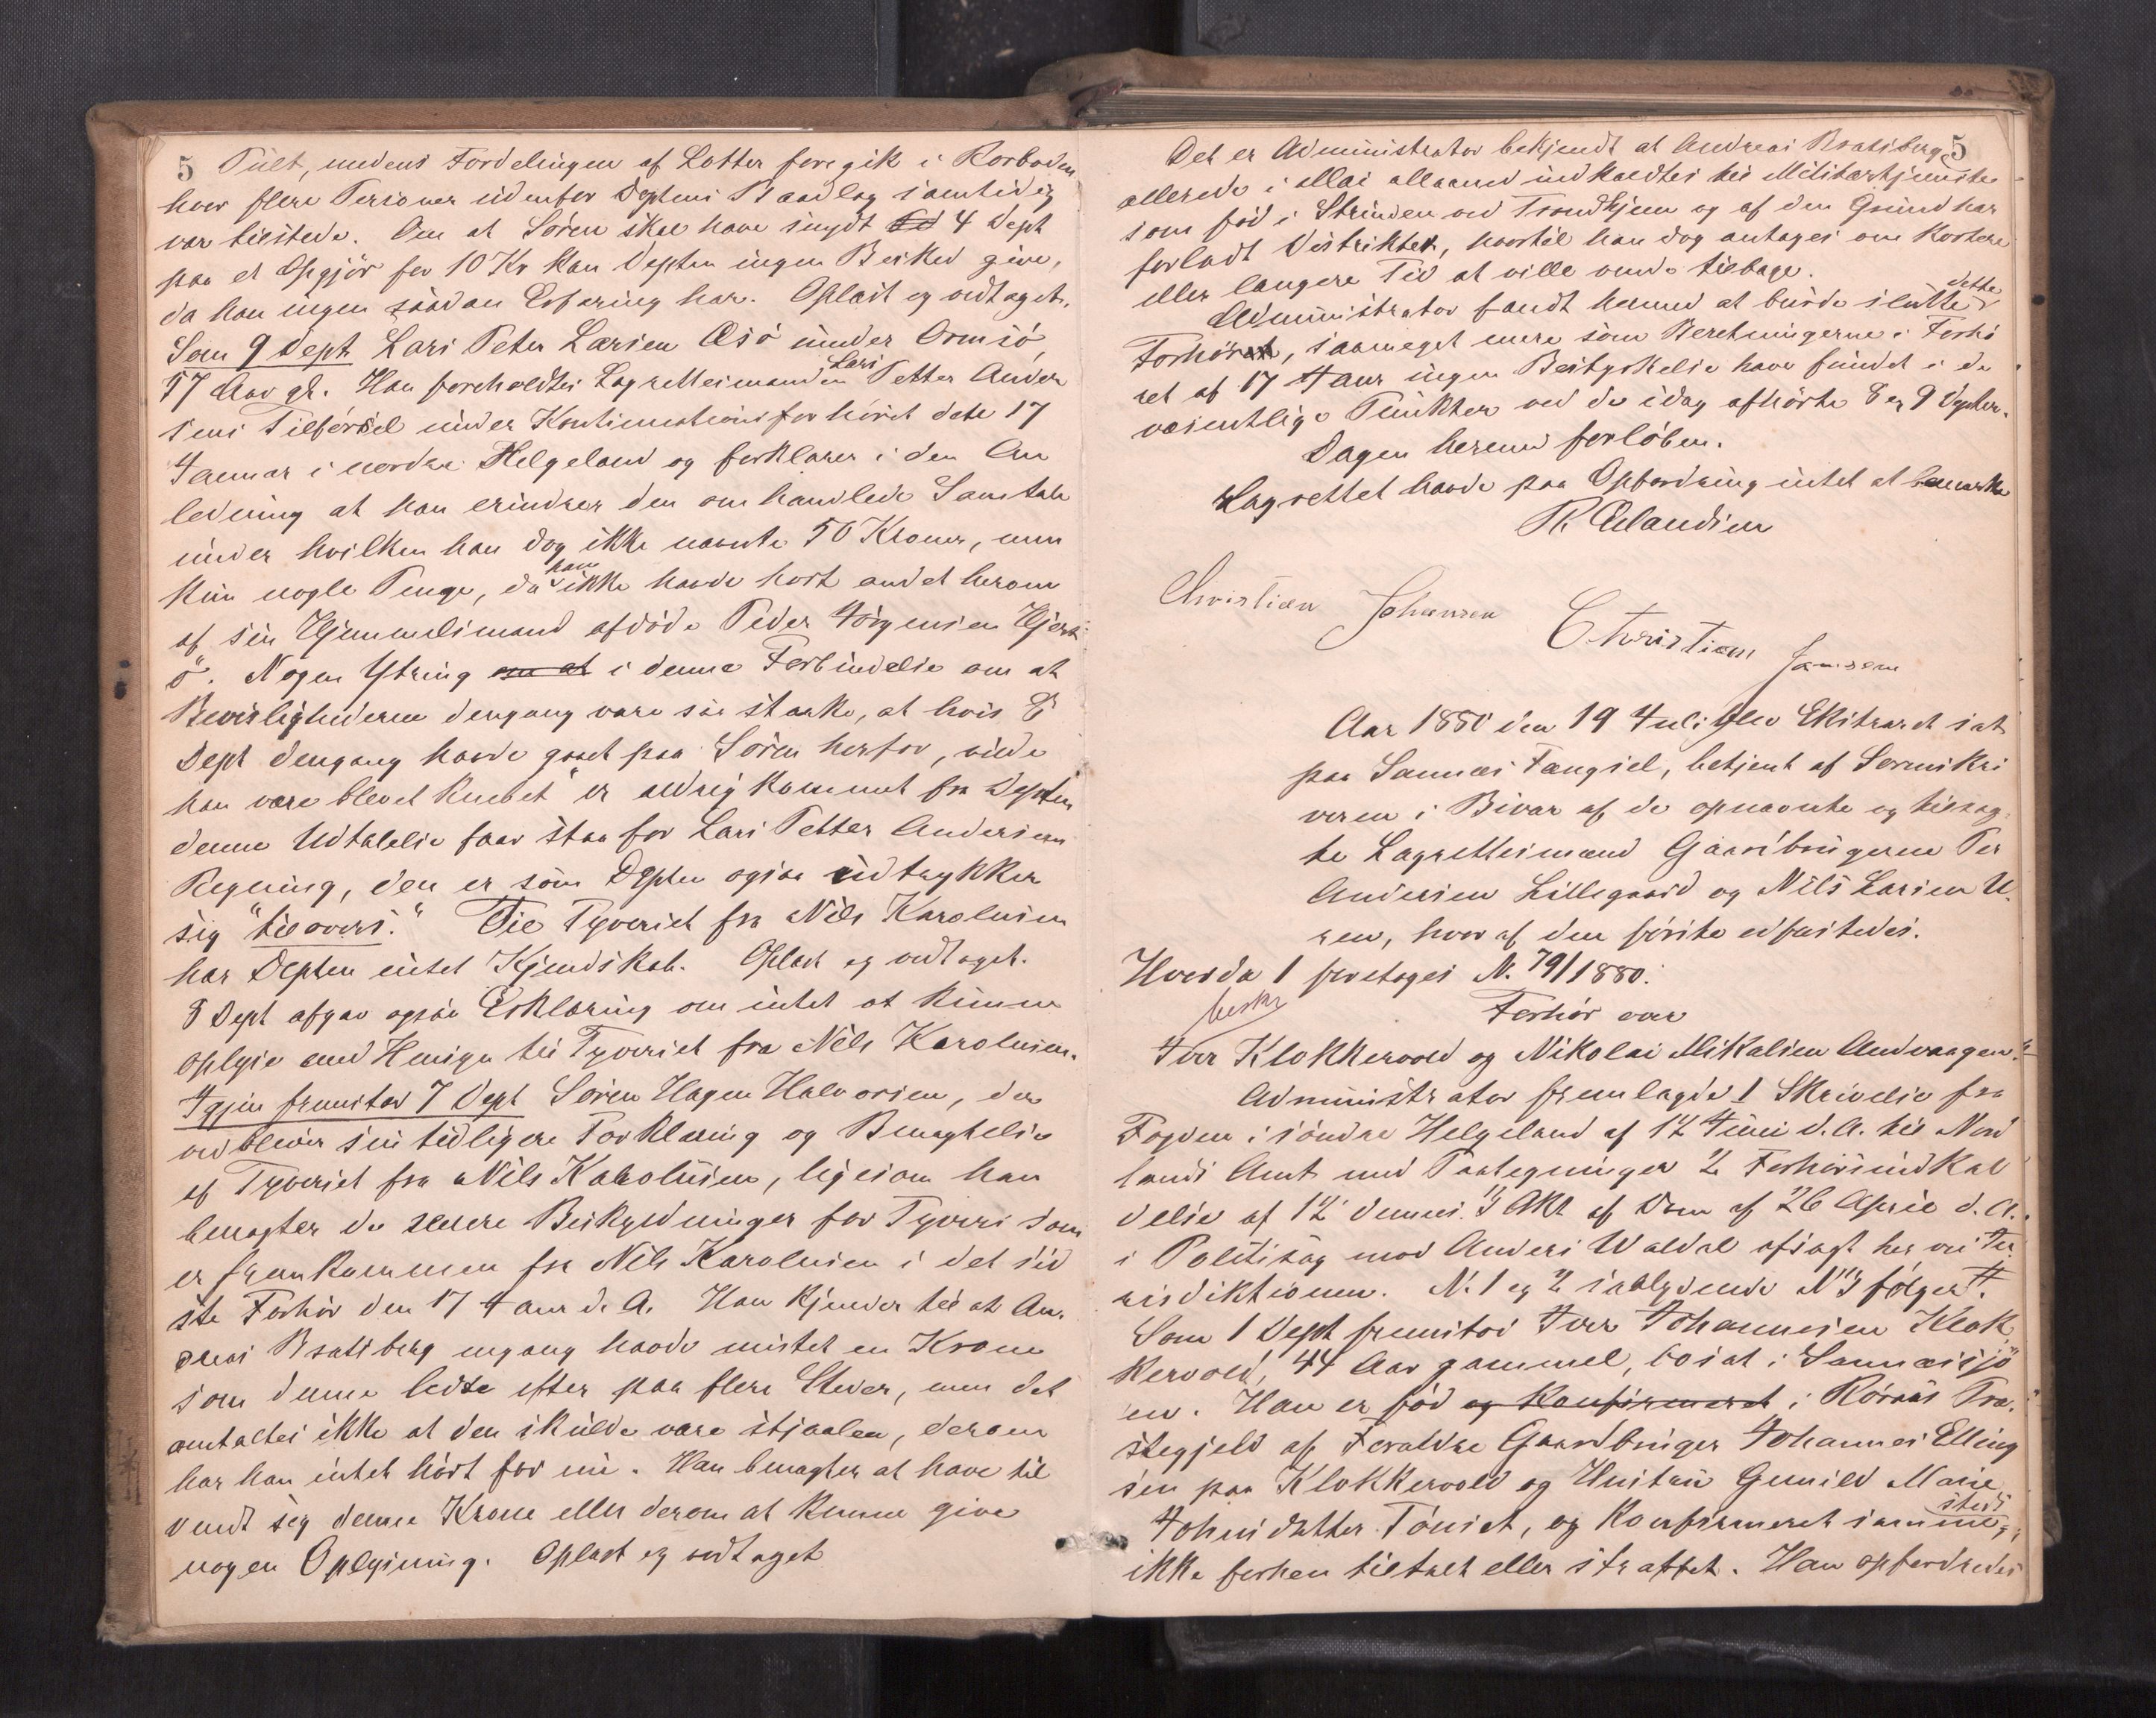 5 Pult, medens Fordelingen af Lotter foregik i Rorboden
hvor flere Personer udenfor Deptens Baadlag samtidig
var tilstede. Om at Sören skal have snydt 4 Dept
paa et Opgjör for 10 Kr kan Depten ingen Besked give,
da han ingen saadan Erfaring har. Oplæst og vedtaget.
Som 9 Dept Lars Peter Larsen Æsö under Ormsö,
57 Aar gl. Han foreholdtes Lagrettesmanden Lars Petter Ander
sens Tilförsel under Kontinuationsforhöret dete 17
Januar i nordre Helgeland og forklarer i den An
ledning at han erindrer den omhandlede Samtale
under hvilken han dog ikke nævnte 50 Kroner, men
kun nogle Penge, da han ikke havde hört andet herom
af sin Hjemmelsmand afdöde Peder Jörgensen Hjert
ö. Nogen Ytring om at i denne Forbindelse om at
Bevislighederne dengang vare saa stærke, at hvis 8
Dept dengang havde gaaet paa Sören herfor, vilde
han være blevet knebet" er aldrig kommet fra Depten
denne Udtalelse faar staa for Lars Petter Andersens
Regning, den er som Depten ogsaa udtrykker
sig "tilovers." Til Tyveriet fra Nils Karolusen
har Depten intet Kjendskab. Oplæst og vedtaget.
8 Dept afgav ogsaa Erklæring om intet at kunne
oplyse med Hensyn til Tyveriet fra Nils Karolusen.
Igjen fremstod 7 Dept Sören Hagen Halvorsen, der
vedblever sin tidligere Forklaring og Benægtelse
af Tyveriet fra Nils Karolusen, ligesom han
benægter de senere Beskyldninger for Tyveri som
er fremkommen fra Nils Karolusen i det sid
ste Forhör den 17 Janr d. A. Han kjender til at An.
dreas Bratsberg engang havde mistet en Krone
som denne ledte efter paa flere Steder, men det
antaltes ikke at den skulde være stjaalen, derom
har han intet hört för nu. Han benægter at have til
vendt sig denne Krone eller derom at kunne give
nogen Oplysning. Oplæst og vedtaget
5
Det er Administrator bekjendt at Andreas Bratsberg
allerede i Mai Maaned indkaldtes til Militærtjeneste
som föd i Strinden ved Trondhjem og af den Grund har
forladt Distriktet, hvortil han dog antages om kortere
eller længere Tid at ville vende tilbage.
Administrator fandt hermed at burde slutte dette
Forhör, saameget mere som Beretningerne i Forhö
ret af 17 Janr ingen Bestyrkelse have fundet i de
væsentlige Punkter ved de idag afhörte 8 og 9 Depter.
Dagen hermed forlöben.
Lagrettet havde paa Opfordring intet at bemærke
R Erlandsen
Christian Johansen Christian Jansen
Aar 1880 den 19 Juli blev Extraret sat
paa Sannæs Fængsel, betjent af Sorenskri
veren i Bivær af de opnævnte og tilsag
te Lagrettesmænd Gaardbrugerne Per
Andersen Lillegaard og Nils Larsen U.
ren, hvoraf den förste edfæstedes.
Hvorda 1 foretoges N. 79/1880:
beskr
Forhör over
Iver Klokkervold og Nikolai Mikalsen Andvaagen.
Administrator fremlagde 1 Skrivelse fra
Fogden i söndre Helgeland af 12 Juni d. A. til Nord
lands Amt med Paategninger 2 Forhörsindkal
delse af 12 dennes. 3 Akt af Dom af 26 April d. A.
i Politisag mod Anders Waldal afsagt her ved Ju
risdiktionen. N. 1 og 2 saalydende N 3 fölger.
Som 1 Dept fremstod Iver Johannesen Klok
kervold, 44 Aar gammel, bosat i Sannæssjö
en. Han er föd og Konfirmeret i Röraas Præ.
stegjeld af Forældre Gaardbruger Johannes Elling
sen paa Klokkervold og Hustru Gunild Marie
Johnsdatter Tönset, og konfirmeret samme steds,
ikke forhen tiltalt eller straffet. Han opfordredes